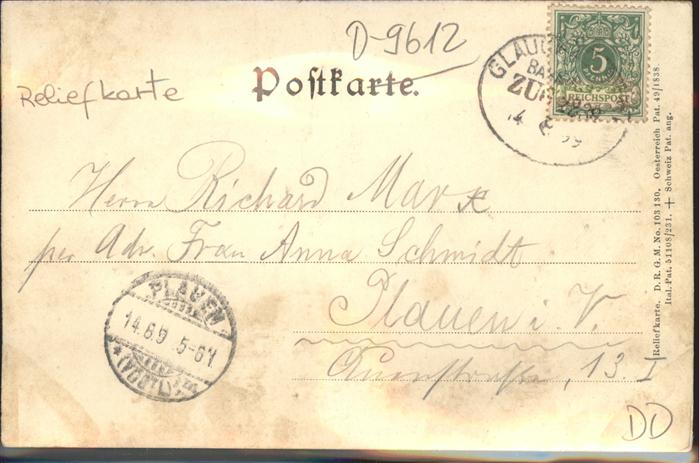 D-9612
Reliefkarte
Postkarte.
5
REICHSPOST
Herrn Richard Marx
per Adr. Frau Anna Schmidt
Plauen i. V.
13. I
PLAUEN
14.6.9 5-6
(VOGTL)
DD
Reliefkarte. D. R. G. M. No. 103 130. Oesterreich Pat. 49/1838.
Ital. Pat. 51108/231. + Schweiz Pat. ang.